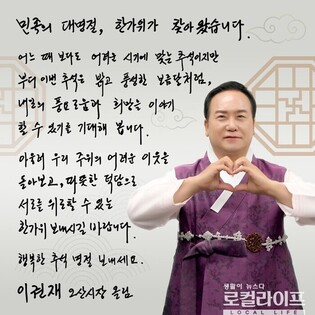 민족의 대명절, 한가위가 찾아왔습니다.
어느 때 보다도 어려운 시기에 맞는 추석이지만
부디 이번 추석은 밝고 풍성한 보름달처럼,
내일의 풍요로움과 희망을 이야기
할 수 있기를 기대해 봅니다.
아울러 우리 주위의 어려운 이웃을
돌아보고, 따뜻한 덕담으로
서로를 위로할 수 있는
한가위 보내시길 바랍니다.
행복한 추석 명절 보내세요.
이권재 오산시장 올림
생활이 뉴스다
로컬라이프
LOCAL LIFE